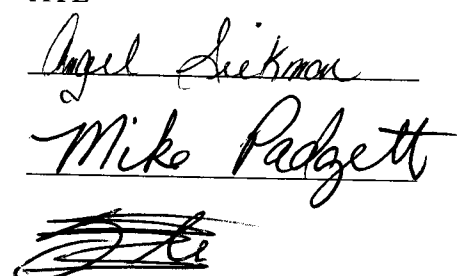 Angel Siekman
Mike Padgett